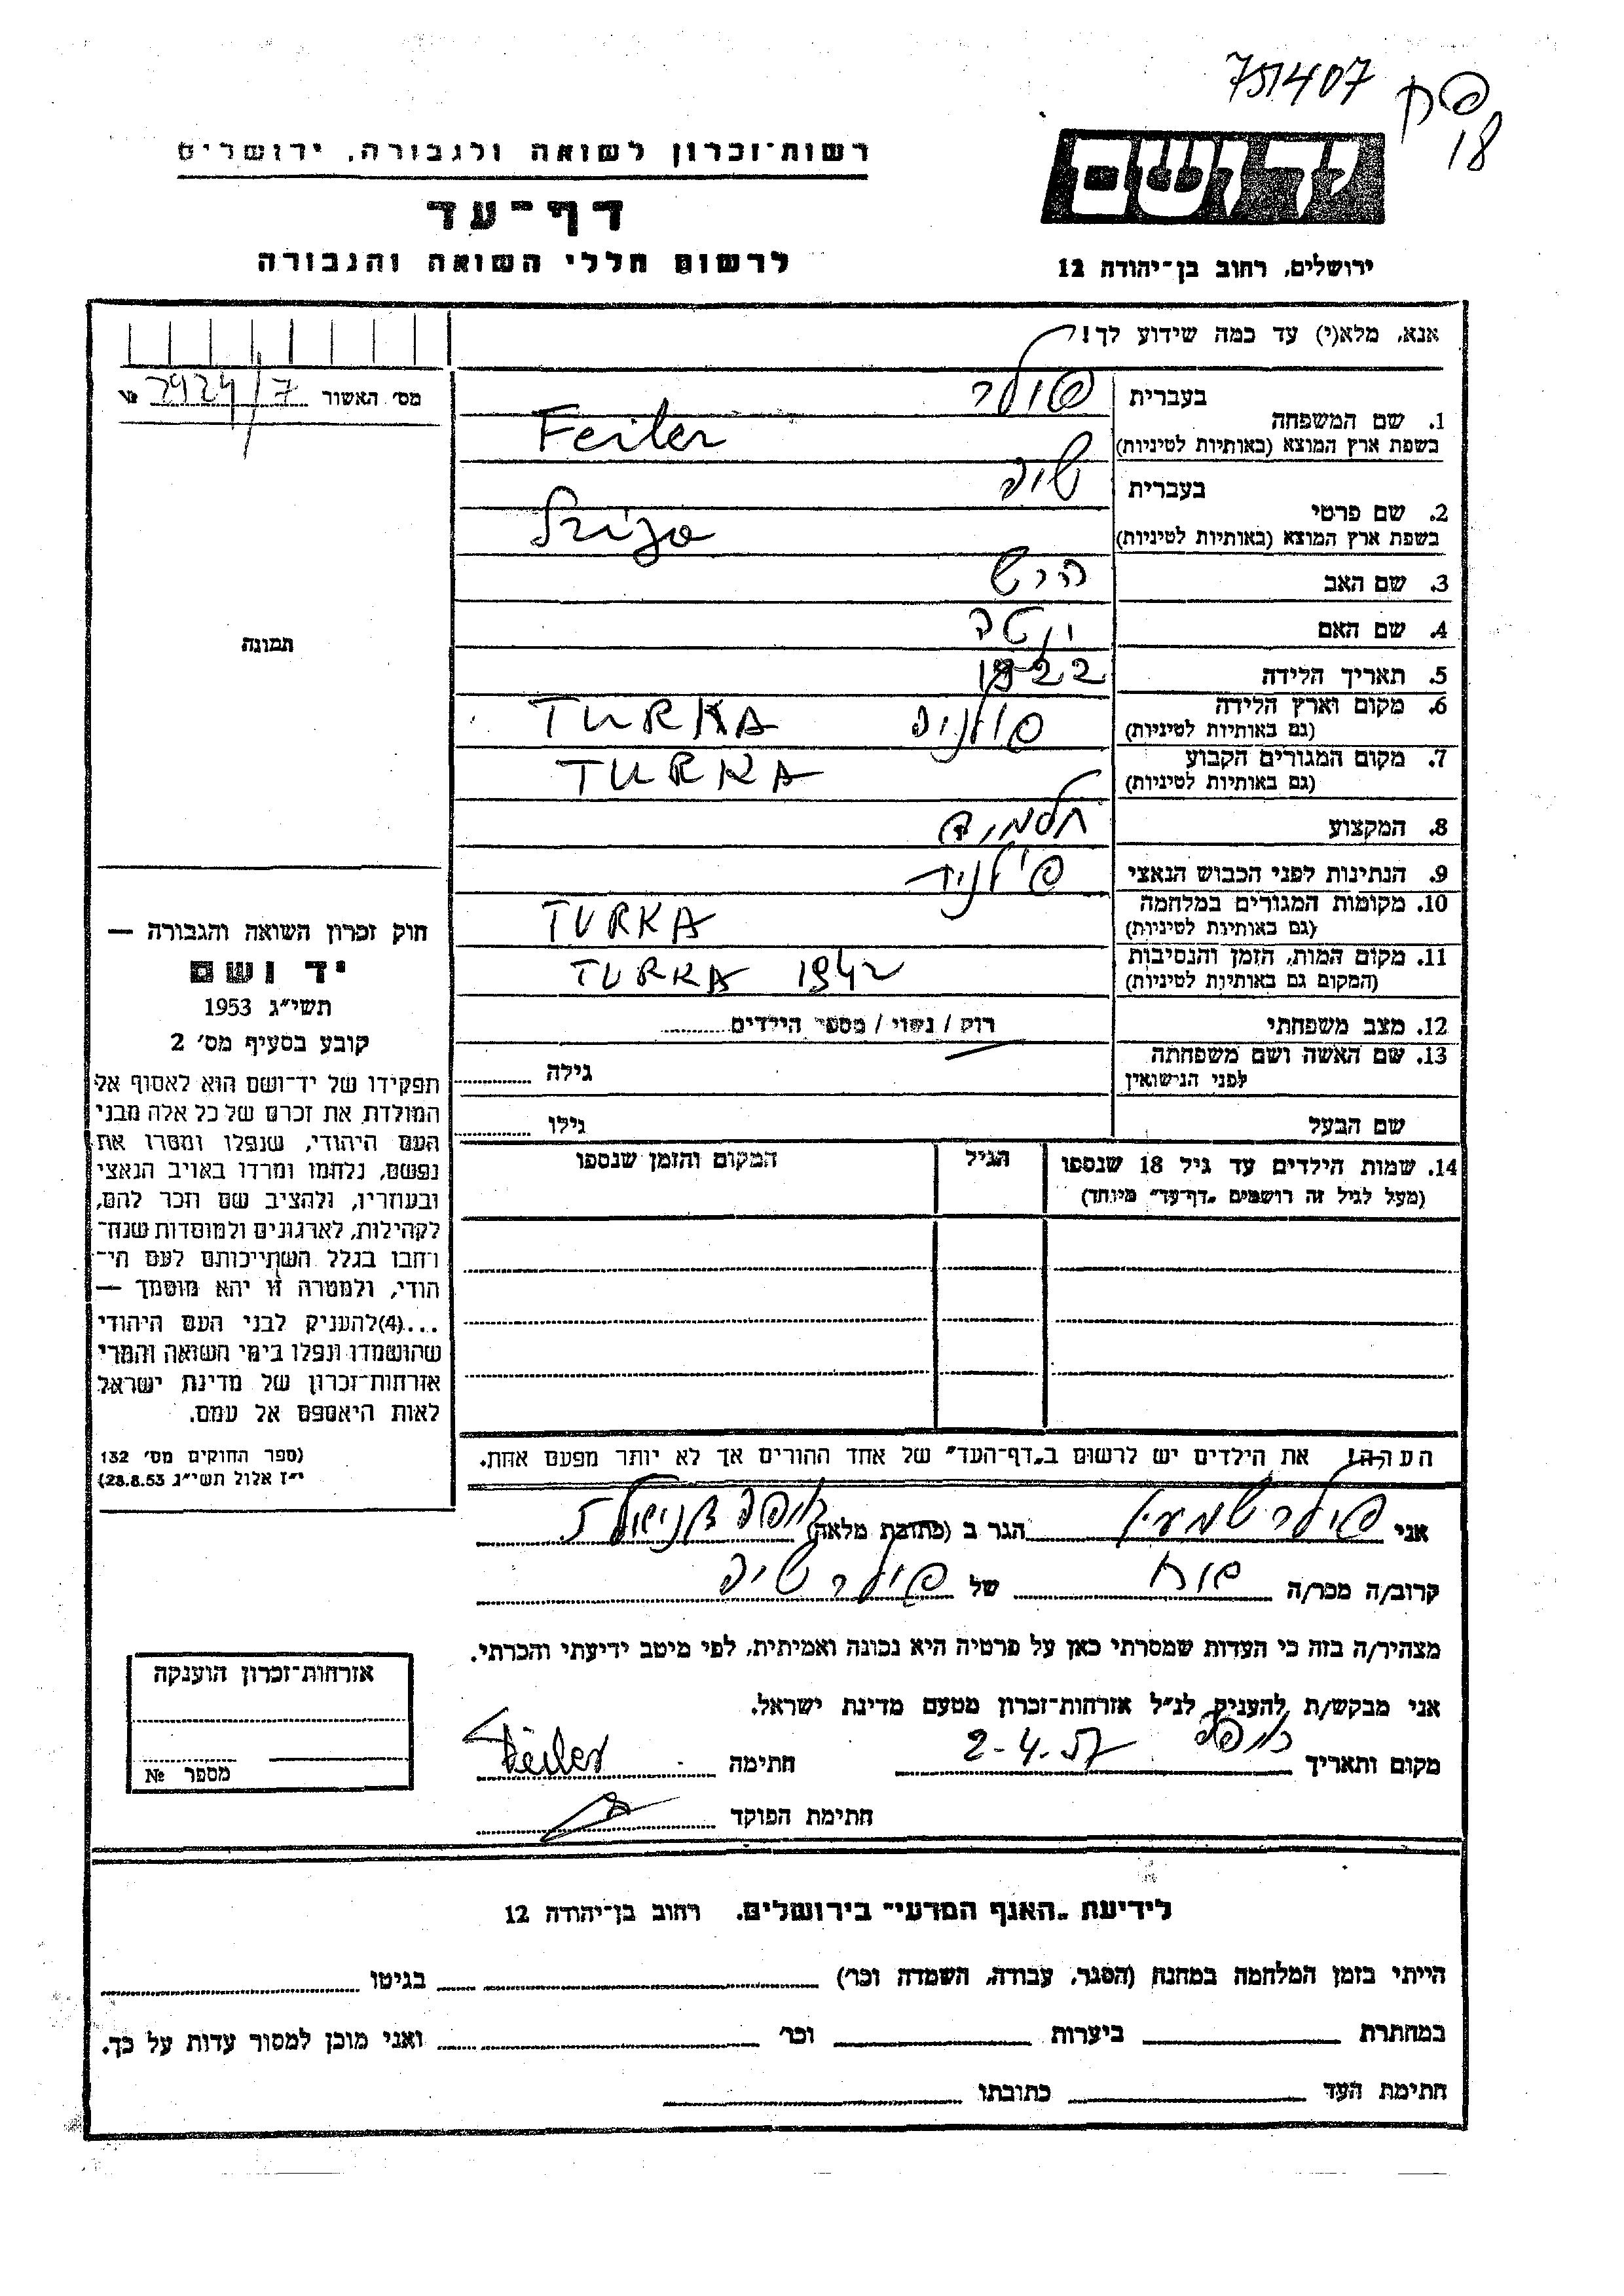 751407
פק
18
רשות־זכרון לשואה ולגבורה, ירושלים
יד ושם
דף־עד
לרשום חללי השואה והגבורה
ירושלים, רחוב בן־יהודה 12
אנא, מלא(י) עד כמה שידוע לך!
מס׳ האשור 7924/7 №
1. שם המשפחה
בעברית פילר
בשפת ארץ המוצא (באותיות לטיניות) Feiler
2. שם פרטי
בעברית
בשפת ארץ המוצא (באותיות לטיניות)
3. שם האב הרש
4. שם האם יטה
5. תאריך הלידה 1922
6. מקום וארץ הלידה (גם באותיות לטיניות) פולניה TURKA
7. מקום המגורים הקבוע (גם באותיות לטיניות) TURKA
8. המקצוע תלמידה
9. הנתינות לפני הכבוש הנאצי פולנית
10. מקומות המגורים במלחמה (גם באותיות לטיניות) TURKA
11. מקום המות, הזמן והנסיבות (המקום גם באותיות לטיניות) TURKA 1942
12. מצב משפחתי רוק / נשוי / מספר הילדים
13. שם האשה ושם משפחתה לפני הנישואין גילה
שם הבעל גילו
14. שמות הילדים עד גיל 18 שנספו הגיל המקום והזמן שנספו
(מעל לגיל זה רושמים „דף־עד״ מיוחד)
תמונה
חוק זכרון השואה והגבורה —
יד ושם
תשי״ג 1953
קובע בסעיף מס׳ 2
תפקידו של יד־ושם הוא לאסוף אל
המולדת את זכרם של כל אלה מבני
העם היהודי, שנפלו ומסרו את
נפשם, נלחמו ומרדו באויב הנאצי
ובעוזריו, ולהציב שם וזכר להם,
לקהילות, לארגונים ולמוסדות שנח־
רחבו בגלל השתייכותם לעם הי־
הודי, ולמטרה זו יהא מוסמך —
...(4)להעניק לבני העם היהודי
שהושמדו ונפלו בימי השואה והמרי
אזרחות־זכרון של מדינת ישראל
לאות היאספם אל עמם.
(ספר החוקים מס׳ 132
י״ז אלול תשי״ג 28.8.53)
הערה! את הילדים יש לרשום ב„דף־העד״ של אחד ההורים אך לא יותר מפעם אחת.
אני פילר שמעון הגר ב (כתובת מלאה) חיפה
קרוב/ה מכר/ה אח של פילר
מצהיר/ה בזה כי העדות שמסרתי כאן על פרטיה היא נכונה ואמיתית, לפי מיטב ידיעתי והכרתי.
אני מבקש/ת להעניק לנ״ל אזרחות־זכרון מטעם מדינת ישראל.
מקום ותאריך חיפה 2-4-57 חתימה Feiler
חתימת הפוקד
אזרחות־זכרון הוענקה
מספר №
לידיעת „האגף המדעי״ בירושלים, רחוב בן־יהודה 12
הייתי בזמן המלחמה במחנה (הסגר, עבודה, השמדה וכר׳) בגיטו
במחתרת ביערות וכר׳ ואני מוכן למסור עדות על כך.
חתימת העד כתובתו